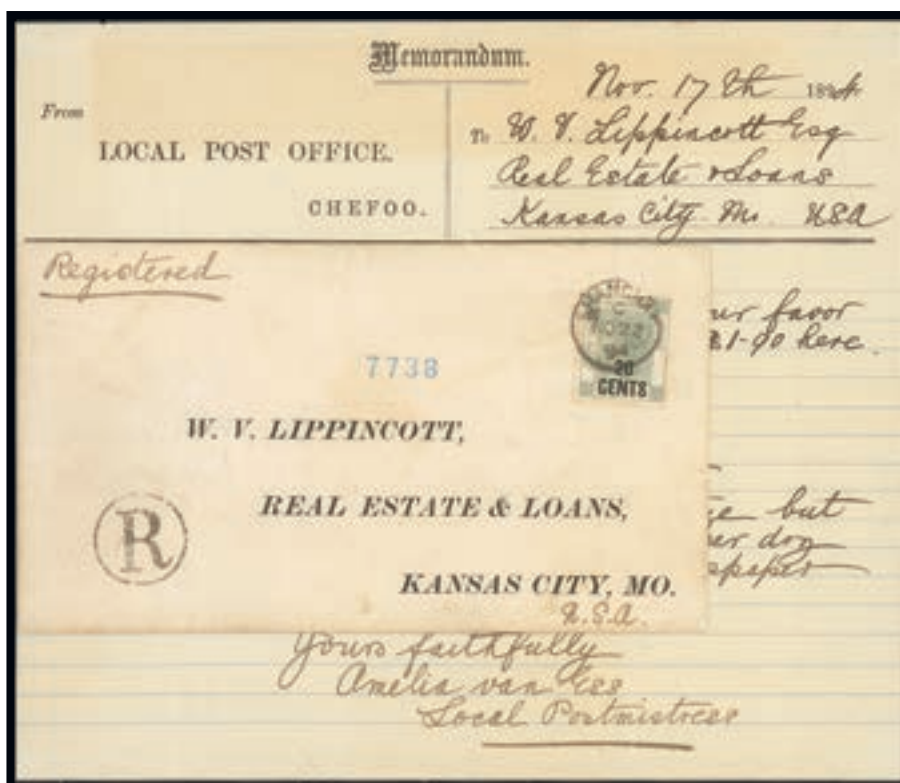 Memorandum.
Nov. 17th 1894
From
LOCAL POST OFFICE.
CHEFOO.
To W. V. Lippincott Esq
Real Estate & Loans
Kansas City Mo. USA
Registered
7738
20
CENTS
W. V. LIPPINCOTT,
REAL ESTATE & LOANS,
KANSAS CITY, MO.
U.S.A.
R
favor
here.
but
Yours faithfully
Amelia van Ess
Local Postmistress